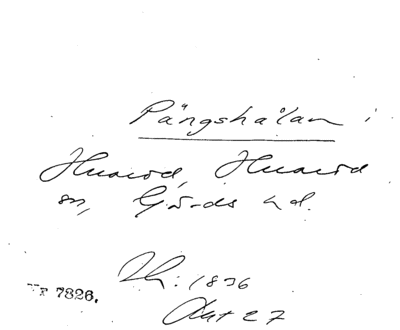 Pängshålan i
Huaröd, Huaröd
sn, Gärds hd.
Th: 1836
Akt 27
7826.